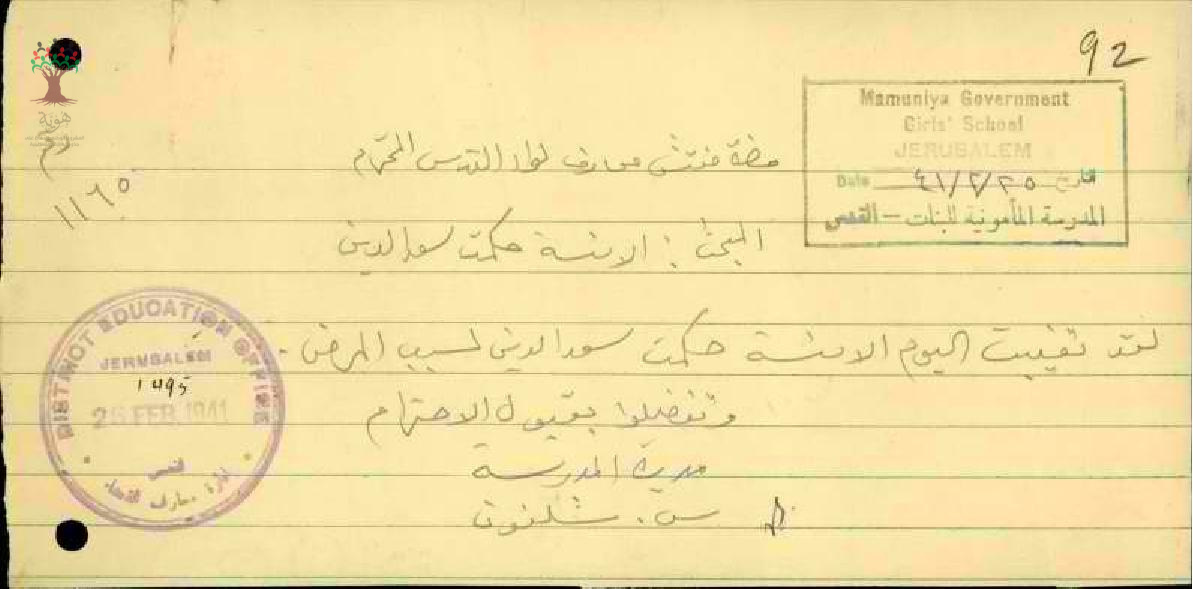 92
Mamuniya Government
Girls' School
JERUSALEM
Date ٤١/٢/٢٥ التاريخ
المدرسة المأمونية للبنات — القدس
هوية
رقم
١١٦٥
حضرة مفتش معارف لواء القدس المحترم
المبحث : الانسة حكمت سعد الدين
لقد تغيبت اليوم الانسة حكمت سعد الدين لسبب المرض .
وتفضلوا بقبول الاحترام
مديرة المدرسة
س.
DISTRICT EDUCATION OFFICE
JERUSALEM
1495
26 FEB 1941
القدس
ادارة معارف